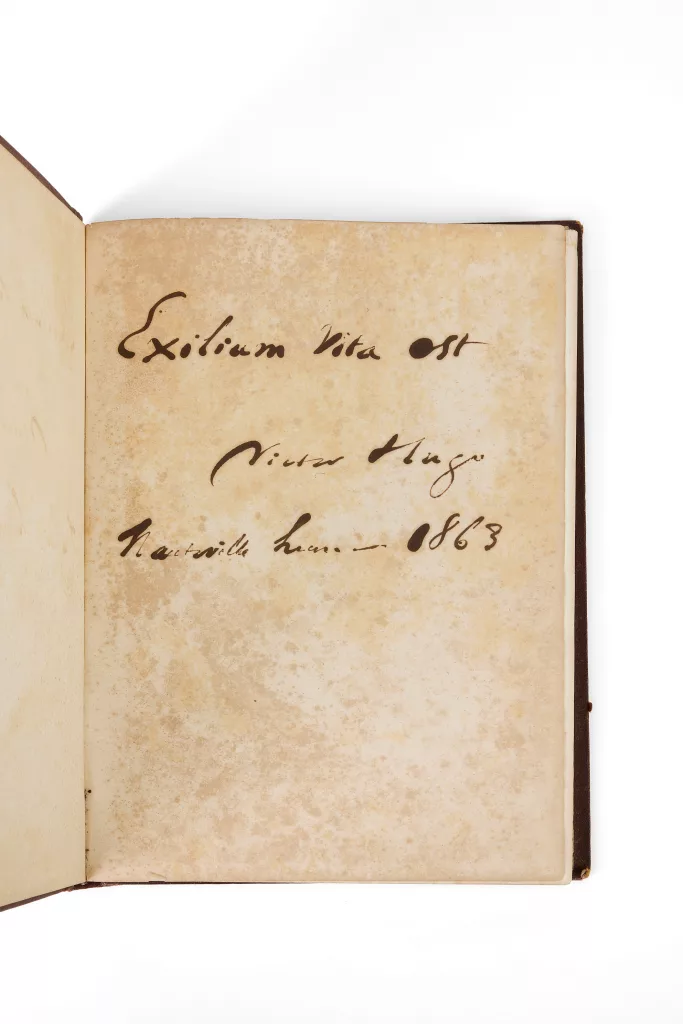 Exilium Vita est
Victor Hugo
Hauteville house — 1863